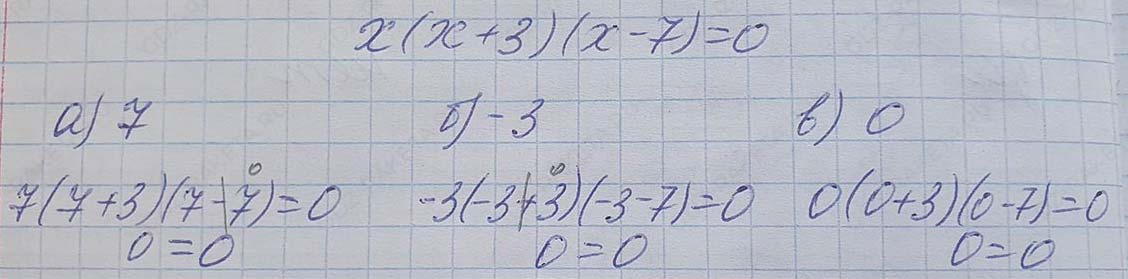 x(x+3)(x-7)=0
а) 7 б) -3 в) 0
0 0
7(7+3)(7-7)=0 -3(-3+3)(-3-7)=0 0(0+3)(0-7)=0
0=0 0=0 0=0